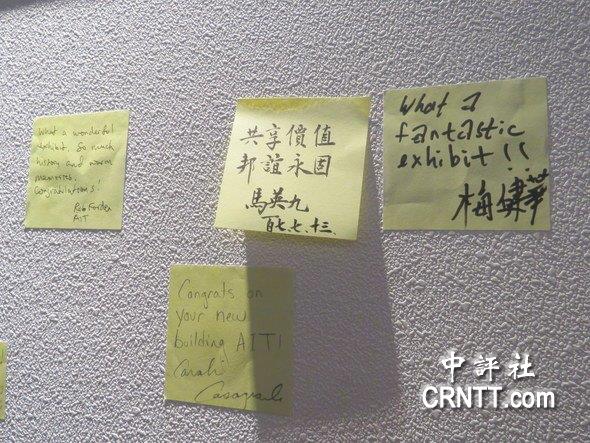 What a wonderful
exhibit. So much
history and warm
memories.
Congratulations!
Rob Forden
AIT
共享價值
邦誼永固
馬英九
百七.七.十三.
What a
fantastic
exhibit!!
梅健華
Congrats on
your new
building AIT!
中評社
CRNTT.com